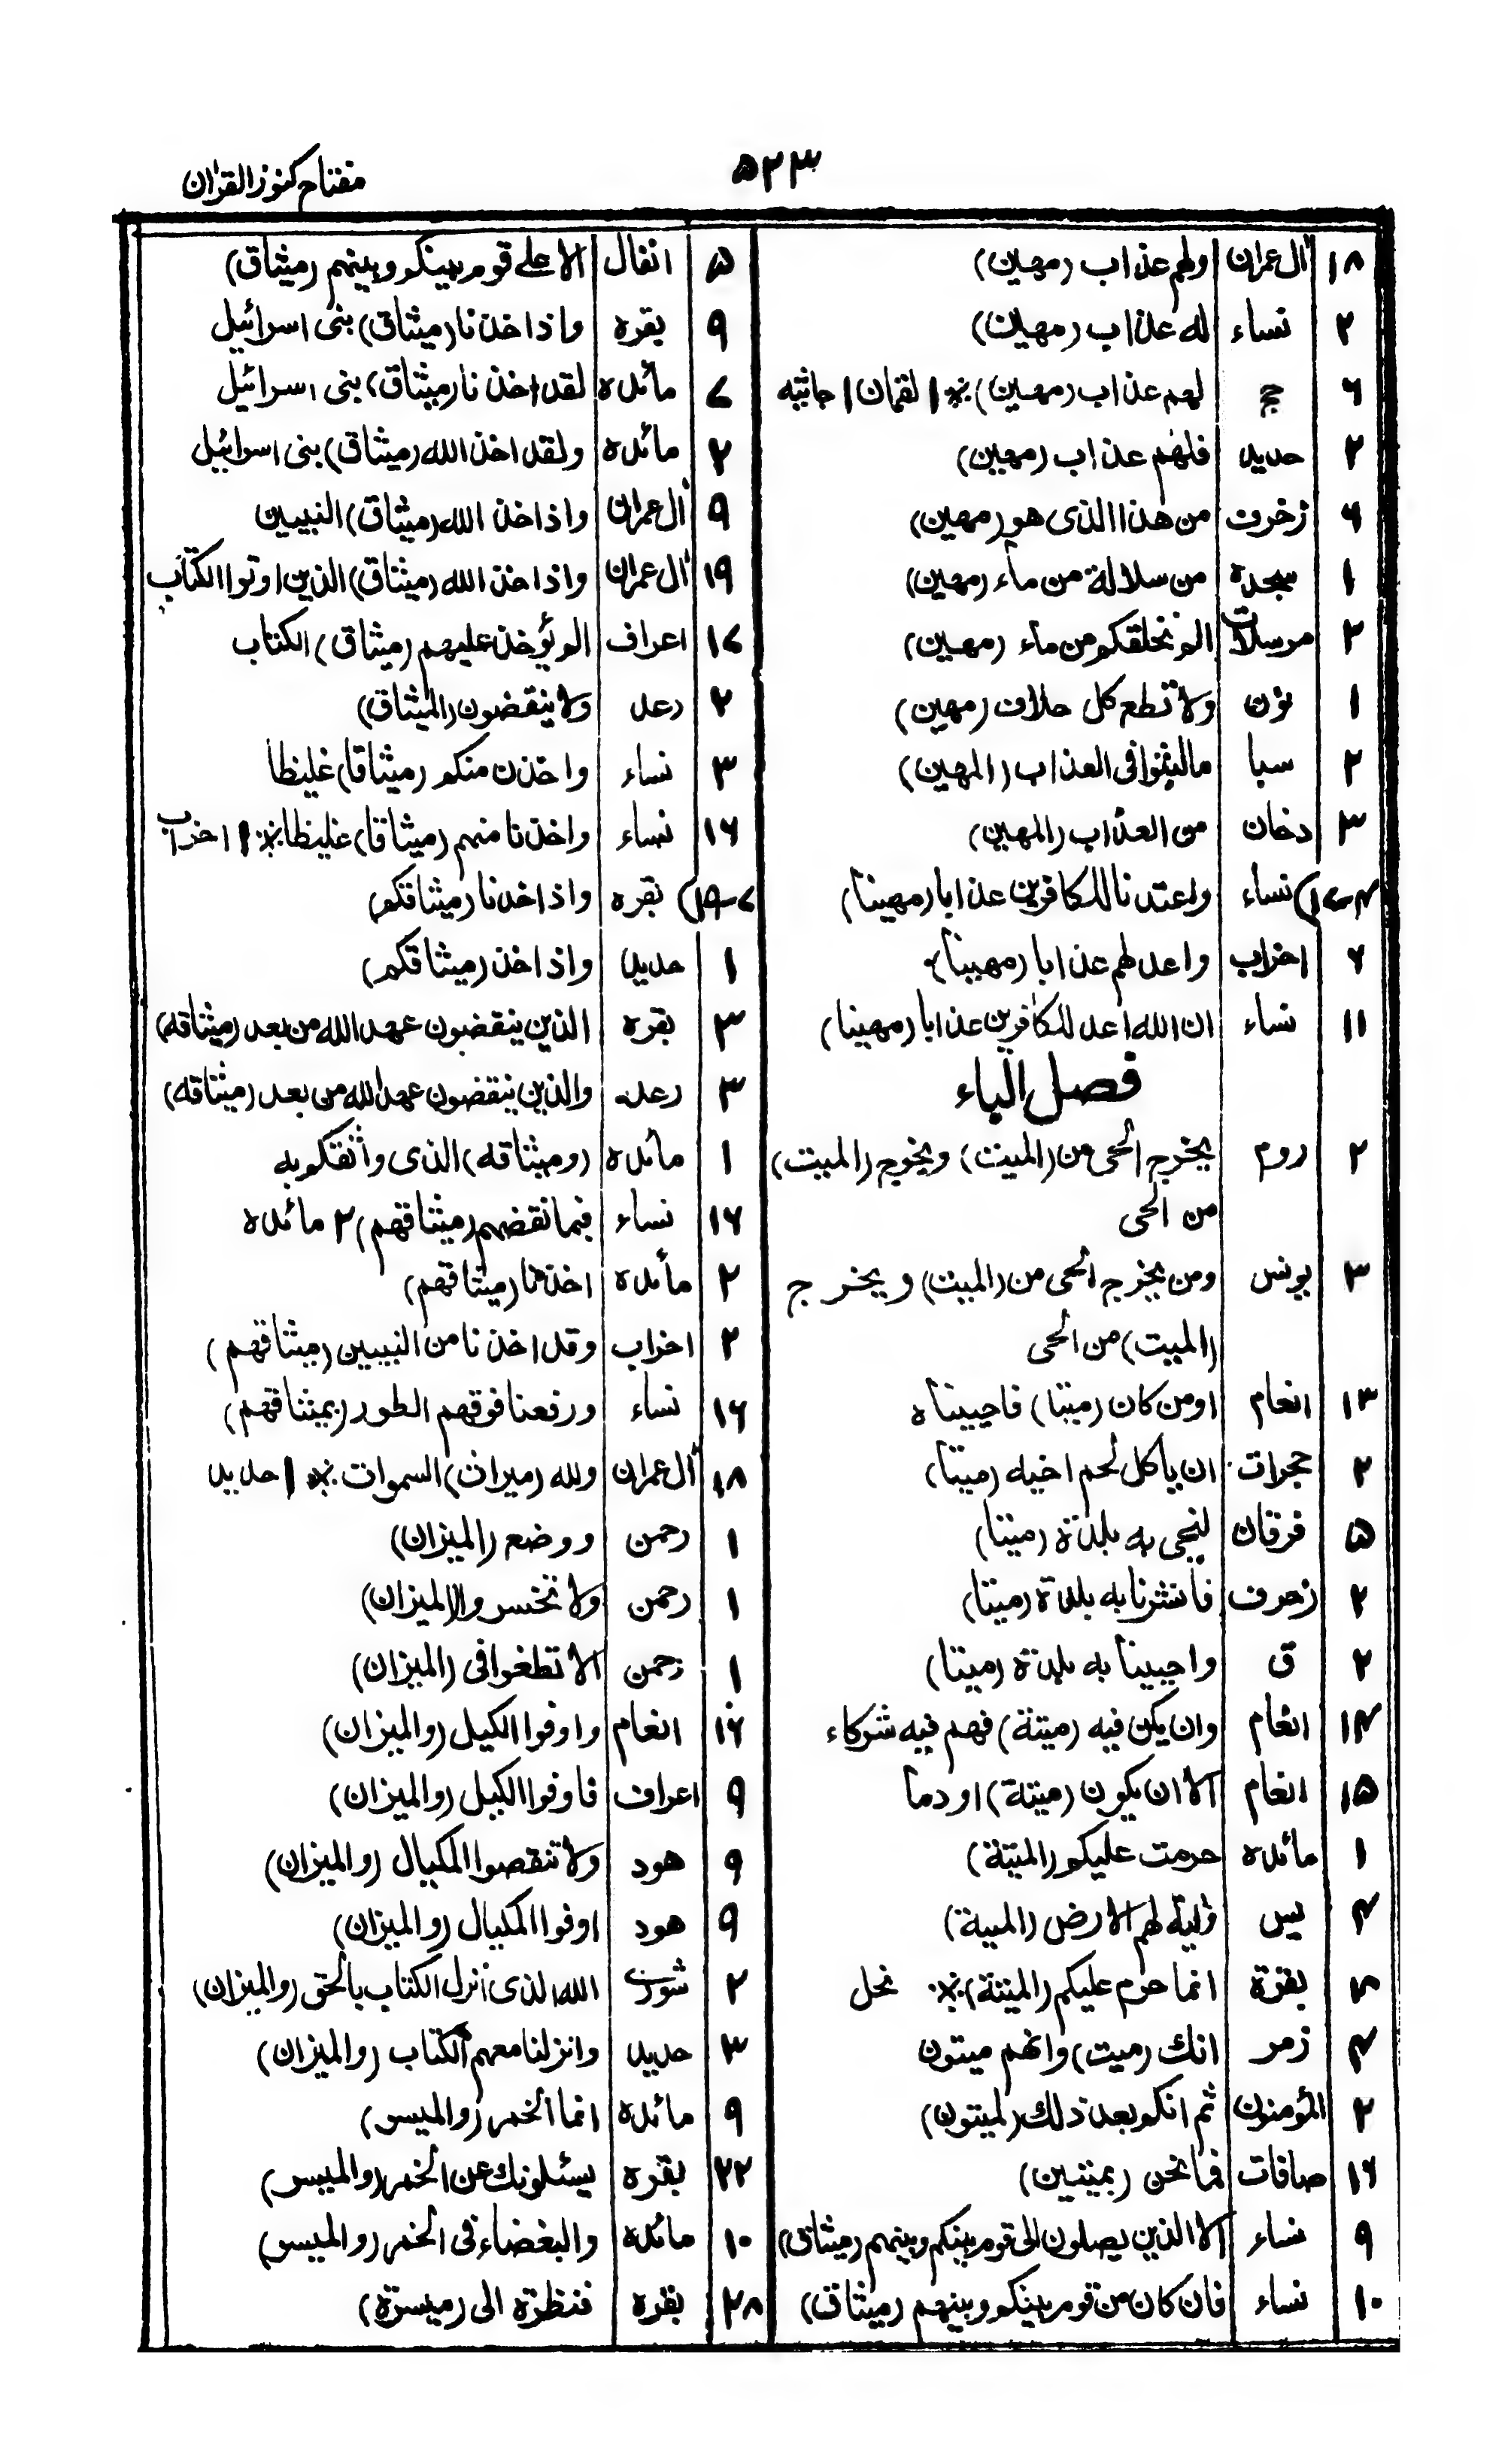 ۵۲۳
مفتاح کنوز القرآن
۱۸ آل عمران ولهم عذاب (مهین)
۲ نساء له عذاب (مهین)
۶ حج لهم عذاب (مهین) ※ ۱ لقمان ۱ جاثیه
۲ حدید فلهم عذاب (مهین)
۶ زخرف من هذا الذی هو (مهین)
۱ سجده من سلالة من ماء (مهین)
۲ مرسلات الم نخلقکم من ماء (مهین)
۱ نون ولا تطع کل حلاف (مهین)
۲ سبا مالبثوا فی العذاب (المهین)
۳ دخان من العذاب (المهین)
(۱۷-۴ نساء واعتدنا للکافرین عذابا (مهینا)
۶ احزاب واعد لهم عذابا (مهینا)
۱۱ نساء ان الله اعد للکافرین عذابا (مهینا)
فصل الیاء
۲ روم یخرج الحی من (المیت) ویخرج (المیت)
من الحی
۳ یونس ومن یخرج الحی من (المیت) ویخرج
(المیت) من الحی
۱۳ انعام اومن کان (میتا) فاحییناه
۲ حجرات ان یاکل لحم اخیه (میتا)
۵ فرقان لنحی به بلدة (میتا)
۲ زخرف فأنشرنا به بلدة (میتا)
۲ ق واحیینا به بلدة (میتا)
۱۴ انعام وان یکن فیه (میتة) فهم فیه شرکاء
۱۵ انعام الا ان یکون (میتة) او دما
۱ مائده حرمت علیکم (المیتة)
۴ یس وایة لهم الارض (المیتة)
۸ بقرة انما حرم علیکم (المیتة) ※ نحل
۴ زمر انک (میت) وانهم میتون
۲ المؤمنون ثم انکم بعد ذلک (لمیتون)
۱۶ صافات فما نحن (بمیتین)
۹ نساء الا الذین یصلون الی قوم بینکم وبینهم (میثاق)
۱۰ نساء فان کان من قوم بینکم وبینهم (میثاق)
۵ انفال الا علی قوم بینکم وبینهم (میثاق)
۹ بقره واذ اخذنا (میثاق) بنی اسرائیل
۷ مائده لقد اخذنا (میثاق) بنی اسرائیل
۲ مائده ولقد اخذ الله (میثاق) بنی اسرائیل
۹ آل عمران واذ اخذ الله (میثاق) النبیین
۱۹ آل عمران واذ اخذ الله (میثاق) الذین اوتوا الکتاب
۱۷ اعراف الم یؤخذ علیهم (میثاق) الکتاب
۲ رعد ولا ینقضون (المیثاق)
۳ نساء واخذن منکم (میثاقا) غلیظا
۱۶ نساء واخذنا منهم (میثاقا) غلیظا ※ ۱ احزاب
(۱۹-۷ بقره واذ اخذنا (میثاقکم)
۱ حدید واذ اخذ (میثاقکم)
۳ بقره الذین ینقضون عهد الله من بعد (میثاقه)
۳ رعد والذین ینقضون عهد الله من بعد (میثاقه)
۱ مائده (ومیثاقه) الذی واثقکم به
۱۶ نساء فبما نقضهم (میثاقهم) ۲ مائده
۲ مأئده اخذنا (میثاقهم)
۲ احزاب وقد اخذنا من النبیین (میثاقهم)
۱۶ نساء ورفعنا فوقهم الطور (بمیثاقهم)
۱۸ آل عمران ولله (میراث) السموات ※ ۱ حدید
۱ رحمن ووضع (المیزان)
۱ رحمن ولا تخسروا (المیزان)
۱ رحمن الا تطغوا فی (المیزان)
۱۶ انعام واوفوا الکیل (والمیزان)
۹ اعراف فاوفوا الکیل (والمیزان)
۹ هود ولا تنقصوا المکیال (والمیزان)
۹ هود اوفوا المکیال (والمیزان)
۲ شوری الله الذی انزل الکتاب بالحق (والمیزان)
۳ حدید وانزلنا معهم الکتاب (والمیزان)
۹ مائده انما الخمر (والمیسر)
۲۲ بقره یسئلونک عن الخمر (والمیسر)
۱۰ مائده والبغضاء فی الخمر (والمیسر)
۲۸ بقره فنظرة الی (میسرة)